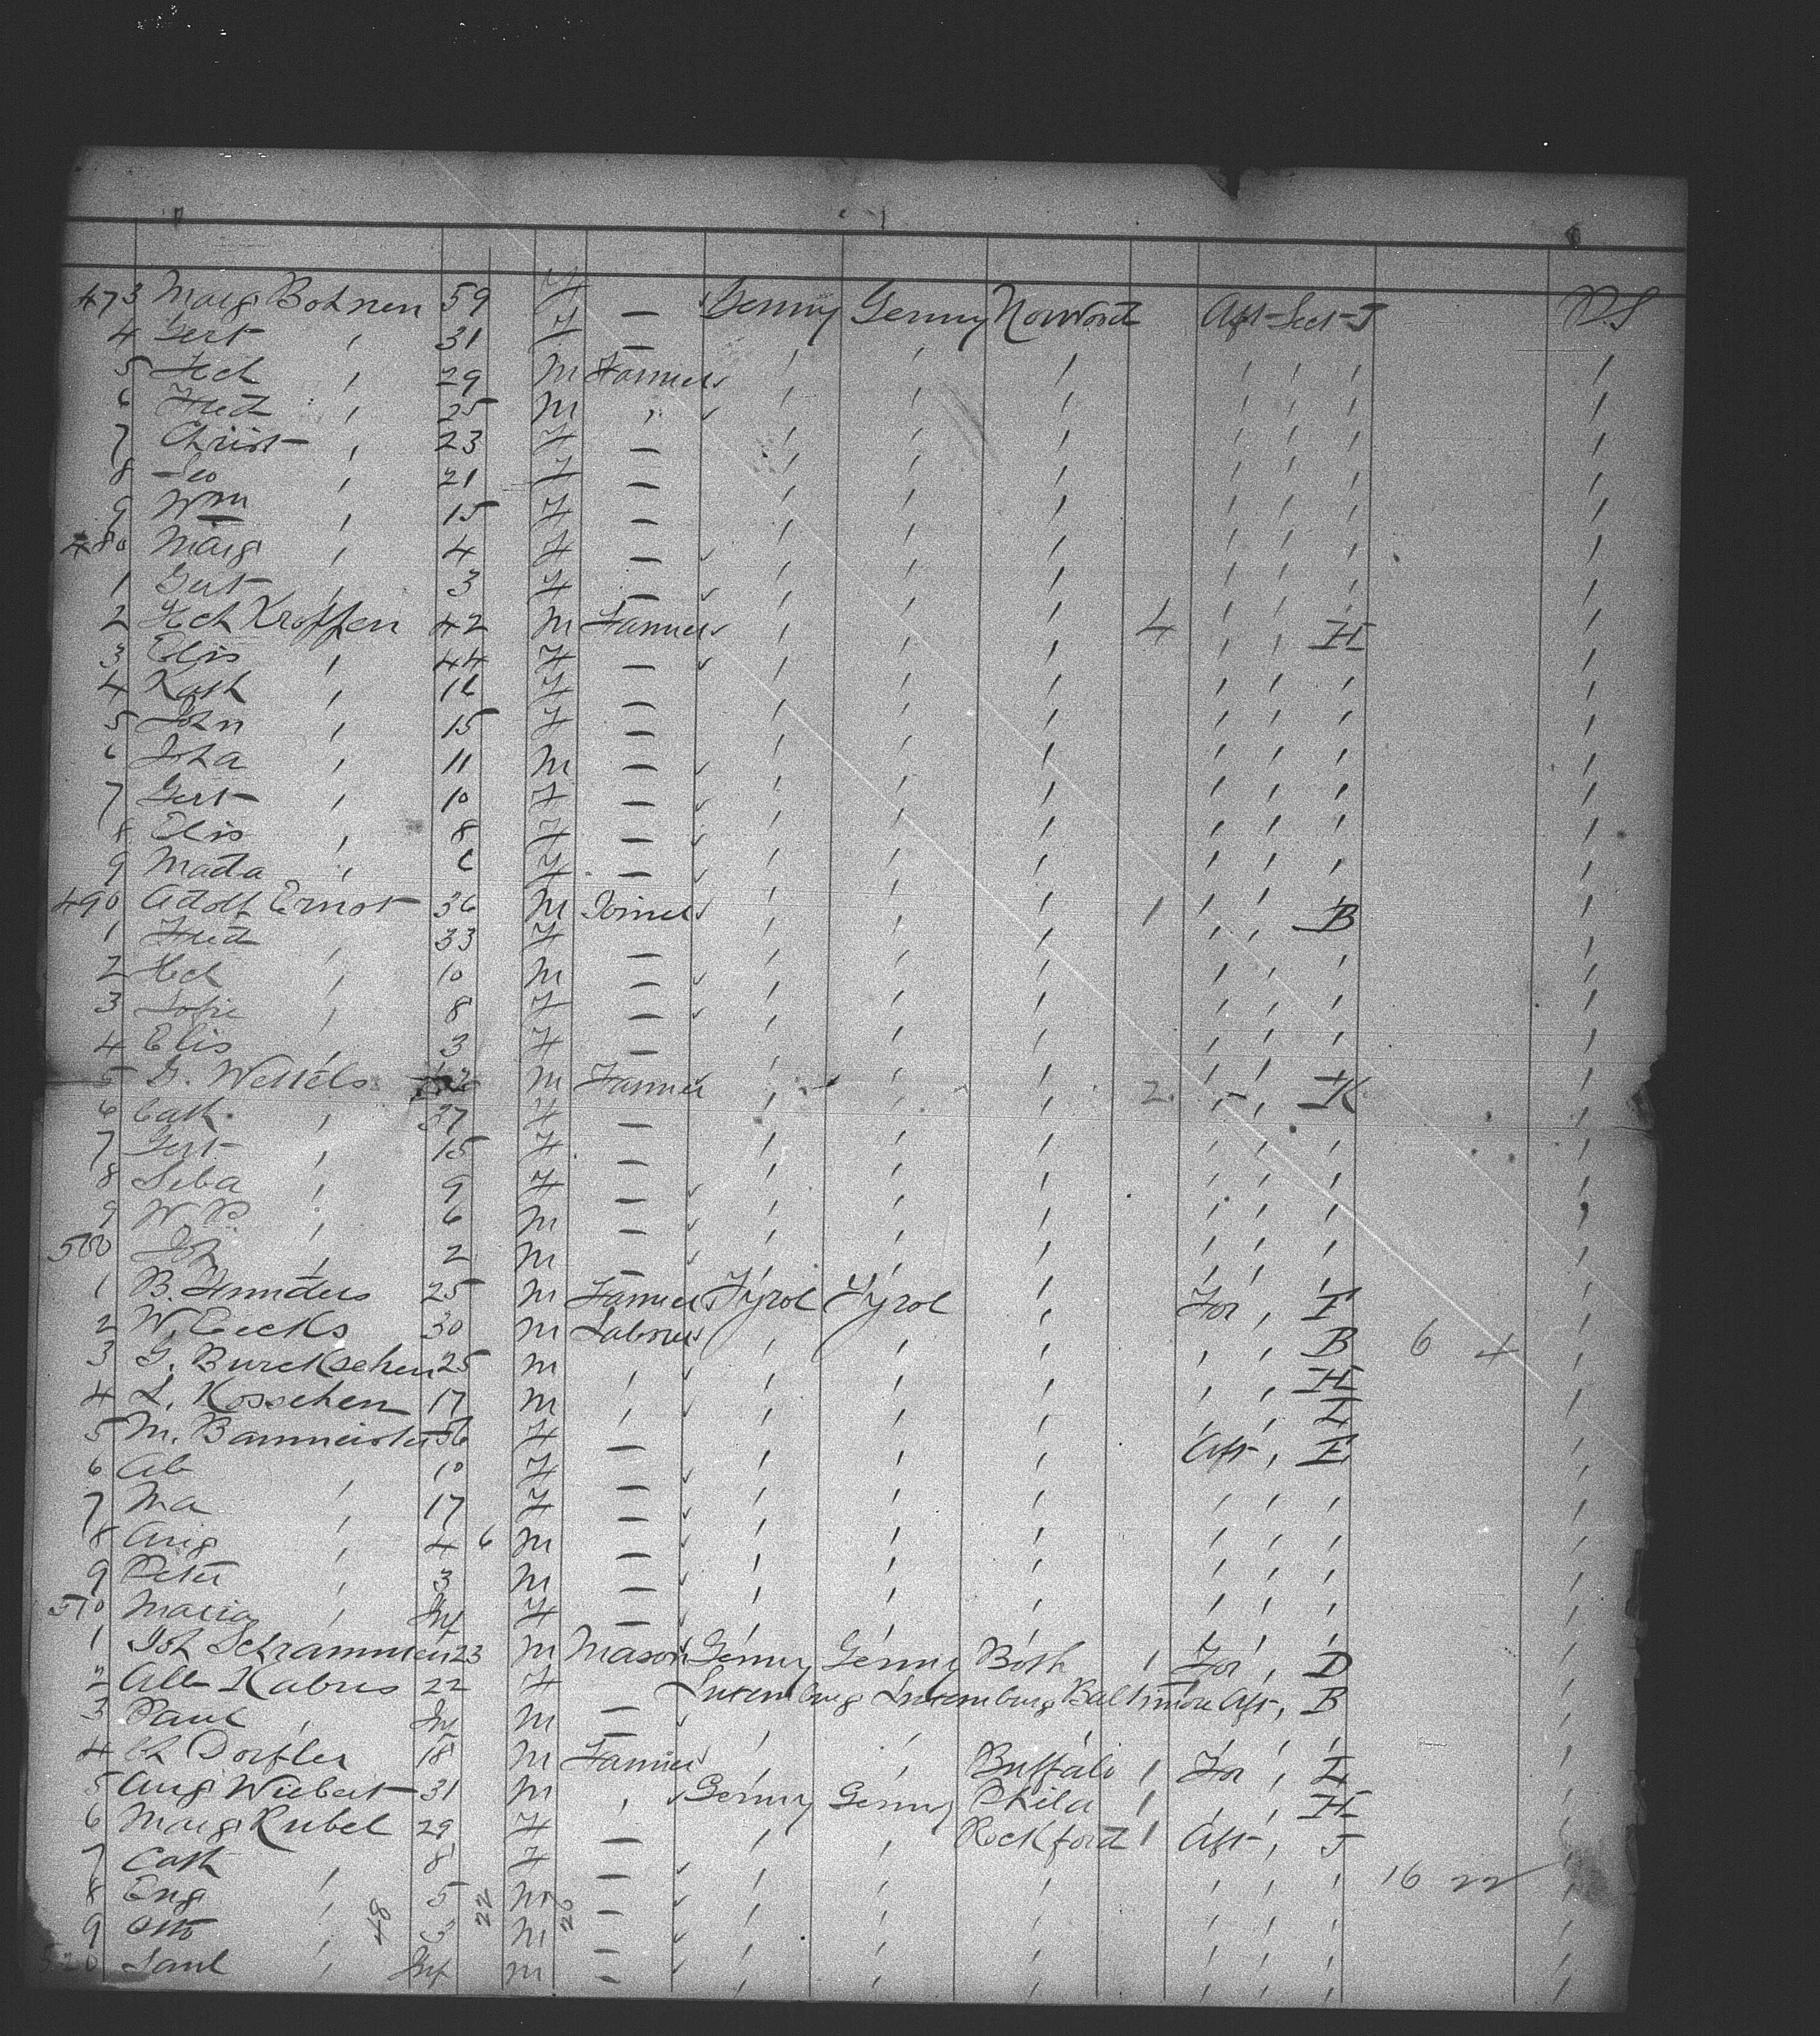 473 Marg Bohnen 59 F — Germy Germy Norwood Aft-Sect-J P.S
4 Gert " 31 F — " " " " " " "
5 Hch " 29 M Farmer " " " " " " "
6 Fred " 25 M " " " " " " " "
7 Christ " 23 F — " " " " " " "
8 Leo " 21 F — " " " " " " "
9 Wm " 15 F — " " " " " " "
480 Marg " 4 F — " " " " " " "
1 Gert " 3 F — " " " " " " "
2 Hch Kroffen 42 M Farmer " " " 4 " " H "
3 Elis " 44 F — " " " " " " "
4 Kath " 16 F — " " " " " " "
5 John " 15 F — " " " " " " "
6 Joha " 11 M — " " " " " " "
7 Gert " 10 F — " " " " " " "
8 Elis " 8 F — " " " " " " "
9 Matta " 6 F — " " " " " " "
490 Adolf Ernst 36 M Joiner " " " 1 " " B "
1 Fred " 33 F — " " " " " " "
2 Hch " 10 M — " " " " " " "
3 Sofie " 8 F — " " " " " " "
4 Elis " 3 F — " " " " " " "
5 G. Wessels M Farmer " " " 2 " " K "
6 Cath " 37 F — " " " " " " "
7 Gert " 15 F — " " " " " " "
8 Seba " 9 F — " " " " " " "
9 W P. " 6 M — " " " " " " "
500 Joh " 2 M — " " " " " " "
1 B. 25 M Farmer Tyrol Tyrol " For " F "
2 W. Eecks 30 M Laborer " " " " " B 6 4 "
3 G. Burckschen 25 M " " " " " " H "
4 L. Kosschen 17 M " " " " " " I "
5 M. Baumeister 36 F — " " " Aft " E "
6 Ab " 10 F — " " " " " " "
7 Ma " 17 F — " " " " " " "
8 Aug " 4 6 M — " " " " " " "
9 Peter " 3 M — " " " " " " "
510 Maria " Inf F — " " " " " " "
1 Joh Schrammen 23 M Mason Germy Germy Both 1 For " D "
2 Alb Kabus 22 F — Luxemburg Luxemburg Baltimore Aft " B "
3 Paul " Inf M — " " " " " " "
4 Ch Dorfler 18 M Farmer " " Buffalo 1 For " I "
5 Aug Wiebert 31 M " Germy Germy Phila 1 " " H "
6 Marg Rubel 29 F — " " Rockford 1 Aft " J "
7 Cath " 8 F — " " " " " " 16 22 "
8 Eng " 5 M — " " " " " " "
9 Otto " 3 M — " " " " " " "
520 Saul " Inf M — " " " " " " "
48 22 26